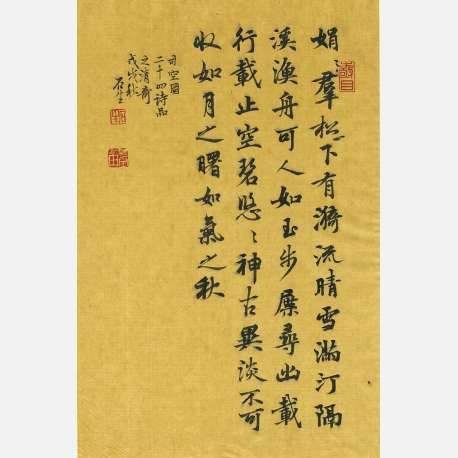 娟〻羣松下有漪流晴雪滿汀隔
溪漁舟可人如玉步屧尋幽載
行載止空碧悠〻神古異淡不可
收如月之曙如氣之秋
司空圖
二十四詩品
之清奇